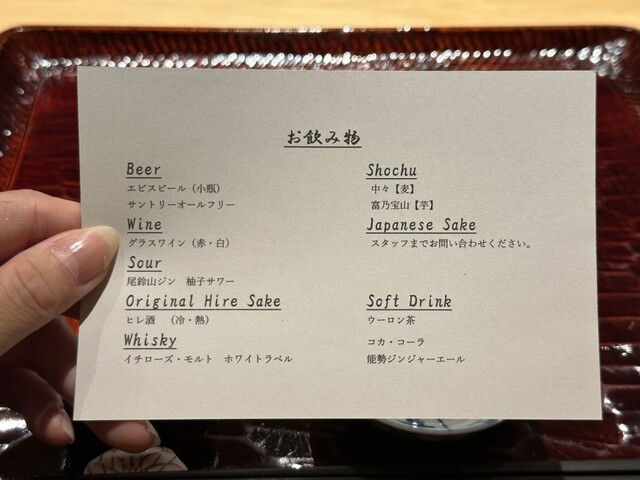 お飲み物
Beer
エビスビール（小瓶）
サントリーオールフリー
Wine
グラスワイン（赤・白）
Sour
尾鈴山ジン　柚子サワー
Original Hire Sake
ヒレ酒　（冷・熱）
Whisky
イチローズ・モルト　ホワイトラベル
Shochu
中々【麦】
富乃宝山【芋】
Japanese Sake
スタッフまでお問い合わせください。
Soft Drink
ウーロン茶
コカ・コーラ
能勢ジンジャーエール